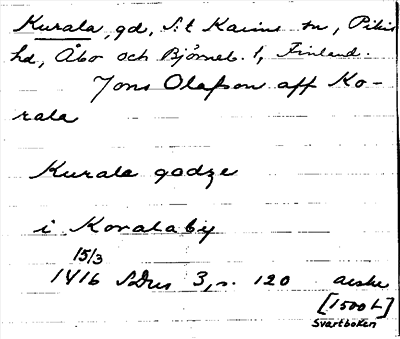 Kurala, gd, S:t Karins sn, Pikis
hd, Åbo och Bjørneb. l, Finland.
Jons Olafson aff Ko-
rala
Kurala godze
i Koralaby
15/3
1416 SDns 3, s. 120 avskr
[1500 t]
Svartboken